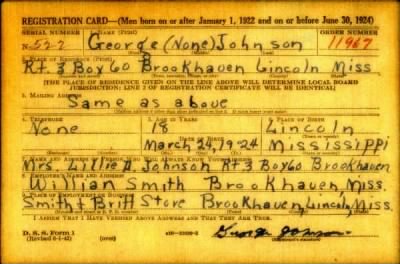 REGISTRATION CARD—(Men born on or after January 1, 1922 and on or before June 30, 1924)
SERIAL NUMBER 1. NAME (Print) ORDER NUMBER
N 522 George (None) Johnson 11967
2. PLACE OF RESIDENCE (Print)
Rt. 3 Box 60 Brookhaven Lincoln Miss
[THE PLACE OF RESIDENCE GIVEN ON THE LINE ABOVE WILL DETERMINE LOCAL BOARD
JURISDICTION; LINE 2 OF REGISTRATION CERTIFICATE WILL BE IDENTICAL]
3. MAILING ADDRESS
Same as above
4. TELEPHONE 5. AGE IN YEARS 6. PLACE OF BIRTH
None 18 Lincoln
DATE OF BIRTH
March 24, 1924 Mississippi
7. NAME AND ADDRESS OF PERSON WHO WILL ALWAYS KNOW YOUR ADDRESS
Mrs. Lillie A. Johnson Rt 3 Box 60 Brookhaven
8. EMPLOYER'S NAME AND ADDRESS
Willian Smith Brookhaven, Miss.
9. PLACE OF EMPLOYMENT OR BUSINESS
Smith & Britt Store Brookhaven, Lincoln, Miss.
I AFFIRM THAT I HAVE VERIFIED ABOVE ANSWERS AND THAT THEY ARE TRUE.
D. S. S. Form 1
(Revised 6-1-42) (over) George Johnson